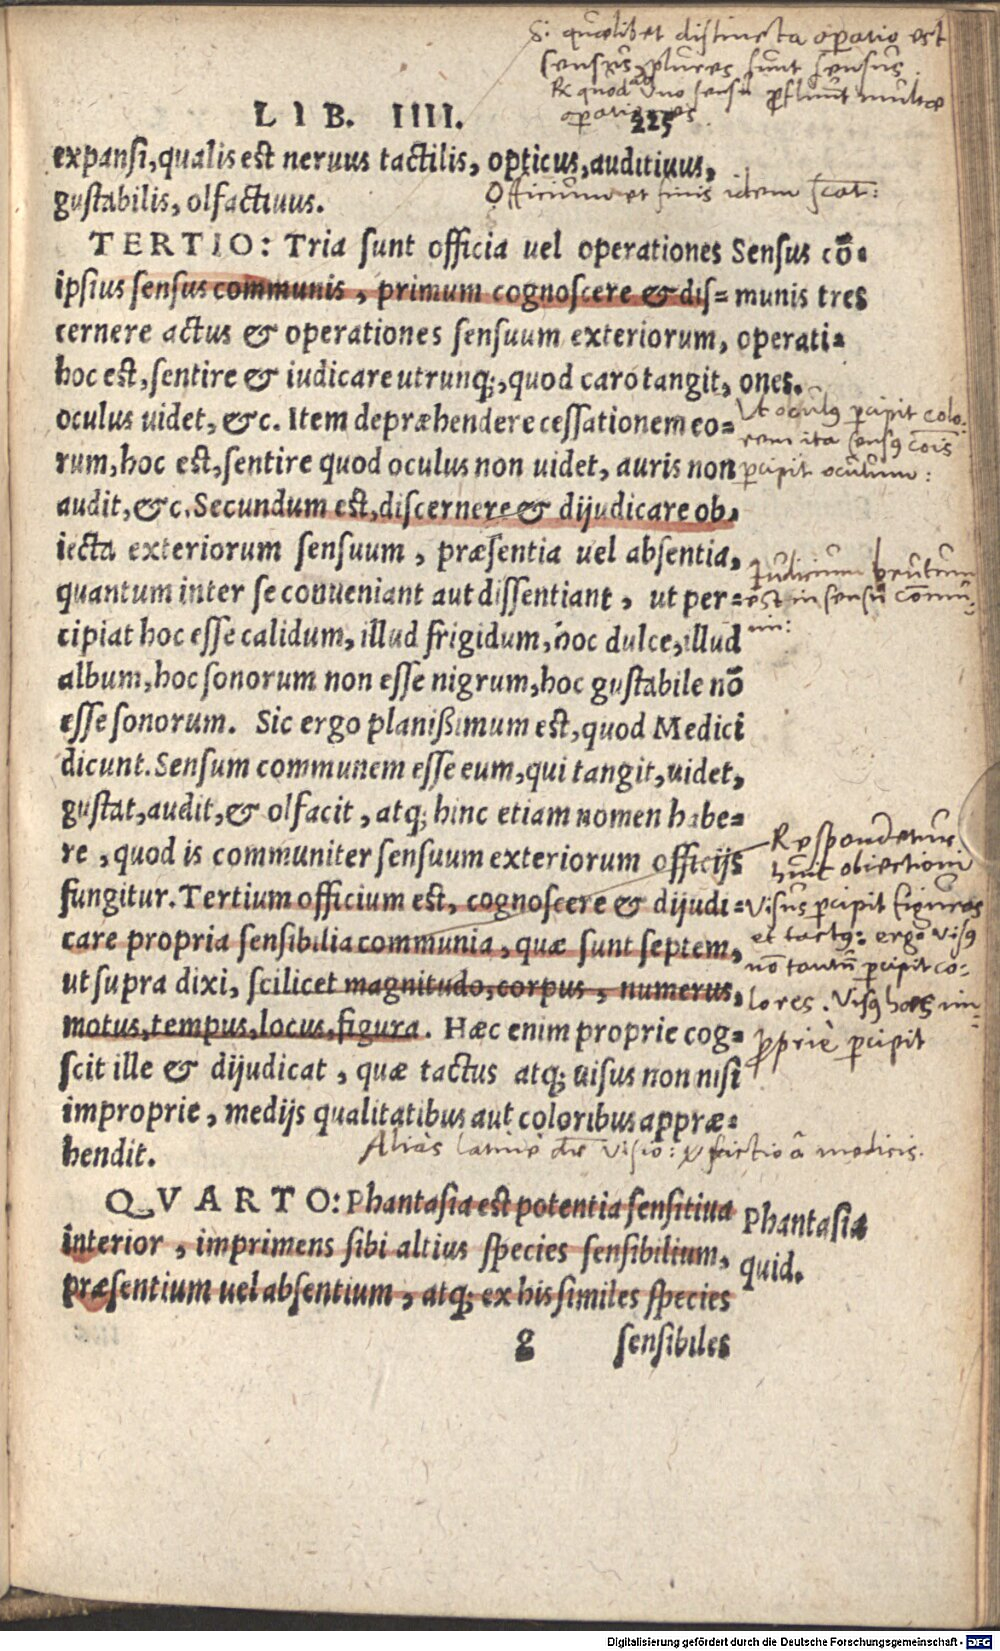 S: quælibet distincta operatio est
sensus, plures sunt sensus
R quod ab uno sensu profluunt multæ
operationes.
LIB. IIII. 225
expansi, qualis est neruus tactilis, opticus, auditiuus,
gustabilis, olfactiuus.
Officium et finis idem
TERTIO: Tria sunt officia uel operationes
ipsius sensus communis, primum cognoscere & dis=
cernere actus & operationes sensuum exteriorum,
hoc est, sentire & iudicare utrunq;, quod caro tangit,
oculus uidet, &c. Item depræhendere cessationem eo=
rum, hoc est, sentire quod oculus non uidet, auris non
audit, &c. Secundum est, discernere & dijudicare ob,
iecta exteriorum sensuum, præsentia uel absentia,
quantum inter se conueniant aut dissentiant, ut per=
cipiat hoc esse calidum, illud frigidum, hoc dulce, illud
album, hoc sonorum non esse nigrum, hoc gustabile nō
esse sonorum. Sic ergo planißimum est, quod Medici
dicunt. Sensum communem esse eum, qui tangit, uidet,
gustat, audit, & olfacit, atq; hinc etiam nomen habe=
re, quod is communiter sensuum exteriorum officijs
fungitur. Tertium officium est, cognoscere & dijudi=
care propria sensibilia communia, quæ sunt septem,
ut supra dixi, scilicet magnitudo, corpus, numerus,
motus, tempus, locus, figura. Hæc enim proprie cog=
scit ille & dijudicat, quæ tactus atq; uisus non nisi
improprie, medijs qualitatibus aut coloribus appræ=
hendit.
Sensus cō=
munis tres
operati=
ones.
Vt oculus percipit colo-
rem ita sensus cōis
percipit oculum:
Judicium brutum
est in sensu commu-
ni:
Respondetur
huic obiectioni
Visus percipit figuras
et tactus: ergo visus
nō tantū percipit co-
lores. Visus hæc im-
propriè percipit
Aliàs latinè visio: medicis.
QVARTO: Phantasia est potentia sensitiua
interior, imprimens sibi altius species sensibilium,
præsentium uel absentium, atq; ex his similes species
Phantasia
quid.
g sensibiles
Digitalisierung gefördert durch die Deutsche Forschungsgemeinschaft - DFG